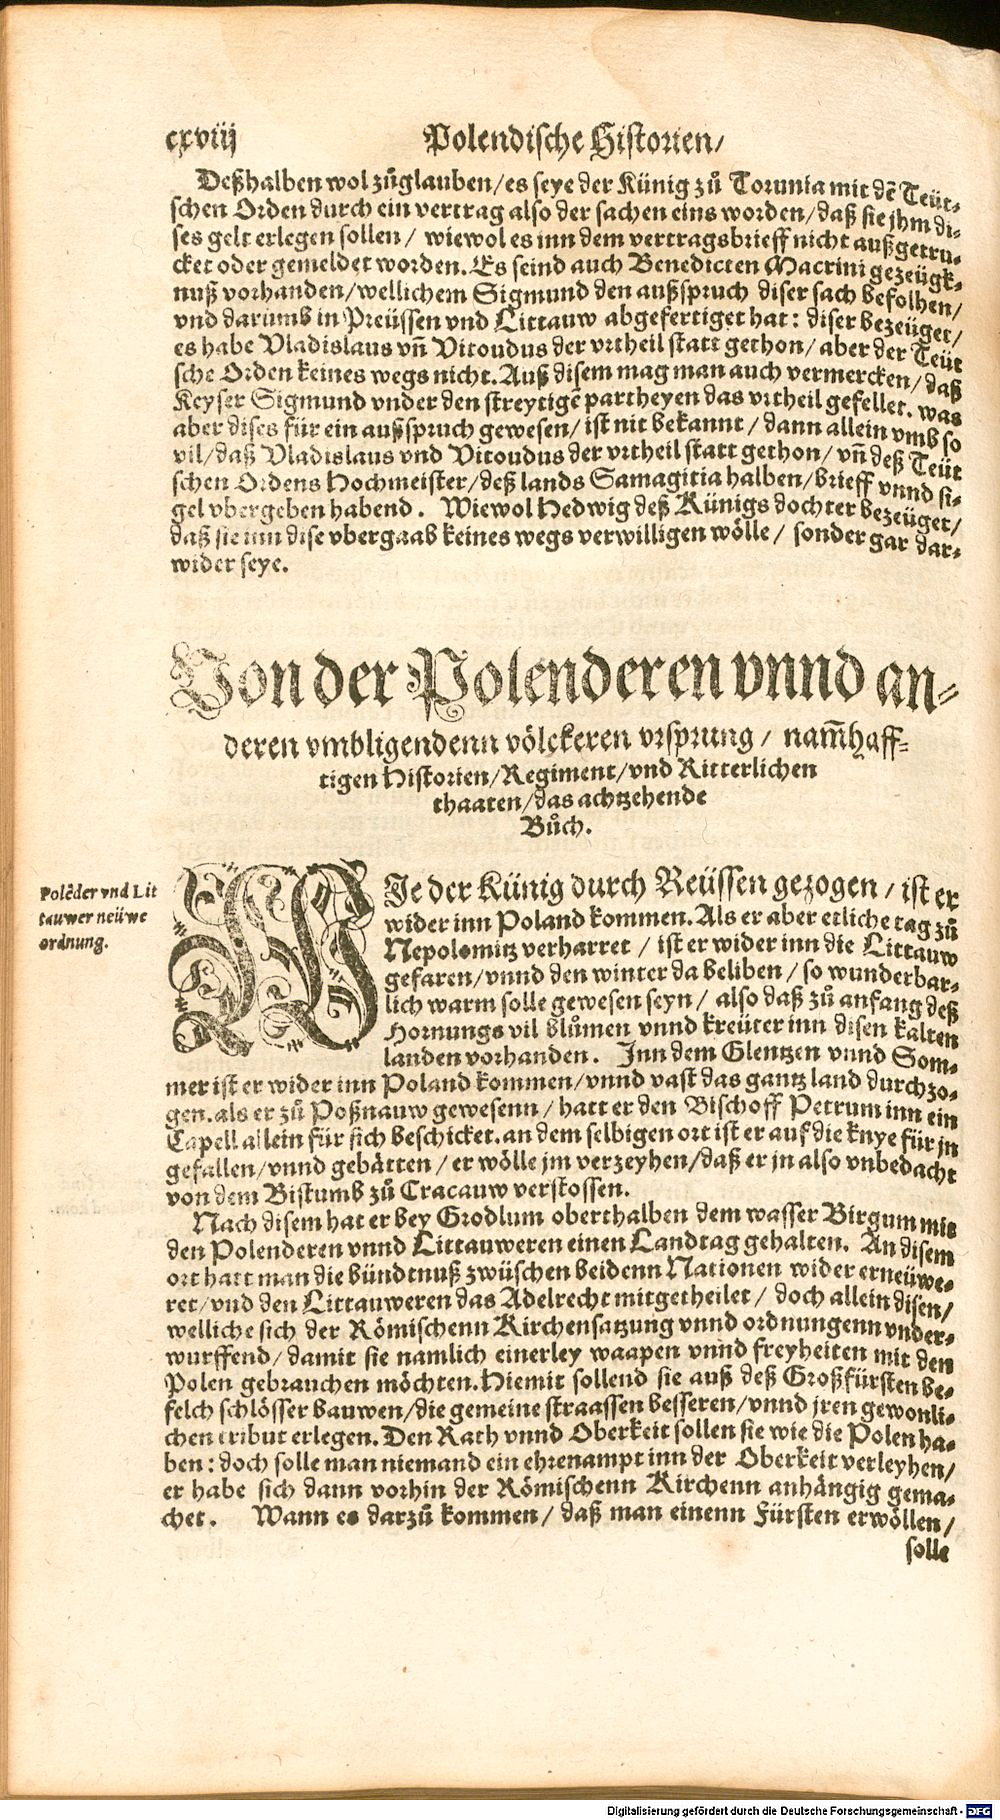 cxviij Polendische Historien/
Deßhalben wol zůglauben/es seye der Künig zů Torunia mit dẽ Teüt-
schen Orden durch ein vertrag also der sachen eins worden/daß sie jhm di-
ses gelt erlegen sollen/ wiewol es inn dem vertragsbrieff nicht außgetru-
cket oder gemeldet worden. Es seind auch Benedicten Macrini gezeügk-
nuß vorhanden/wellichem Sigmund den außspruch diser sach befolhen/
vnd darumb in Preüssen vnd Littauw abgefertiget hat: diser bezeüget/
es habe Vladislaus vñ Vitoudus der vrtheil statt gethon/ aber der Teüt
sche Orden keines wegs nicht. Auß disem mag man auch vermercken/ daß
Keyser Sigmund vnder den streytigẽ partheyen das vrtheil gefellet. was
aber dises für ein außspruch gewesen/ ist nit bekannt/ dann allein vmb so
vil/ daß Vladislaus vnd Vitoudus der vrtheil statt gethon/ vñ deß Teüt
schen Ordens Hochmeister/deß lands Samagitia halben/brieff vnnd si-
gel vbergeben habend. Wiewol Hedwig deß Künigs dochter bezeüget/
daß sie inn dise vbergaab keines wegs verwilligen wölle/ sonder gar dar-
wider seye.
Von der Polenderen vnnd an-
deren vmbligendenn völckeren vrsprung/ nam̃haff-
tigen Historien/Regiment/vnd Ritterlichen
thaaten/das achtzehende
Bůch.
Polẽder vnd Lit
tauwer neüwe
ordnung.
WJe der Künig durch Reüssen gezogen/ ist er
wider inn Poland kommen. Als er aber etliche tag zů
Nepolomitz verharret/ ist er wider inn die Littauw
gefaren/vnnd den winter da beliben/ so wunderbar-
lich warm solle gewesen seyn/ also daß zů anfang deß
Hornungs vil blůmen vnnd kreüter inn disen kalten
landen vorhanden. Inn dem Glentzen vnnd Som-
mer ist er wider inn Poland kommen/vnnd vast das gantz land durchzo-
gen. als er zů Poßnauw gewesenn/ hatt er den Bischoff Petrum inn ein
Capell allein für sich beschicket. an dem selbigen ort ist er auf die knye für jn
gefallen/vnnd gebätten/ er wölle jm verzeyhen/daß er jn also vnbedacht
von dem Bistumb zů Cracauw verstossen.
Nach disem hat er bey Grodlum oberthalben dem wasser Birgum mit
den Polenderen vnnd Littauweren einen Landtag gehalten. An disem
ort hatt man die bündtnuß zwüschen beidenn Nationen wider erneüwe-
ret/vnd den Littauweren das Adelrecht mitgetheilet/ doch allein disen/
welliche sich der Römischenn Kirchensatzung vnnd ordnungenn vnder-
wurffend/damit sie namlich einerley waapen vnnd freyheiten mit den
Polen gebrauchen möchten. Hiemit sollend sie auß deß Großfürsten be-
felch schlösser bauwen/die gemeine straassen besseren/vnnd jren gewonli-
chen tribut erlegen. Den Rath vnnd Oberkeit sollen sie wie die Polen ha-
ben: doch solle man niemand ein ehrenampt inn der Oberkeit verleyhen/
er habe sich dann vorhin der Römischenn Kirchenn anhängig gema-
chet. Wann es darzů kommen/ daß man einenn Fürsten erwöllen/
solle
Digitalisierung gefördert durch die Deutsche Forschungsgemeinschaft - DFG